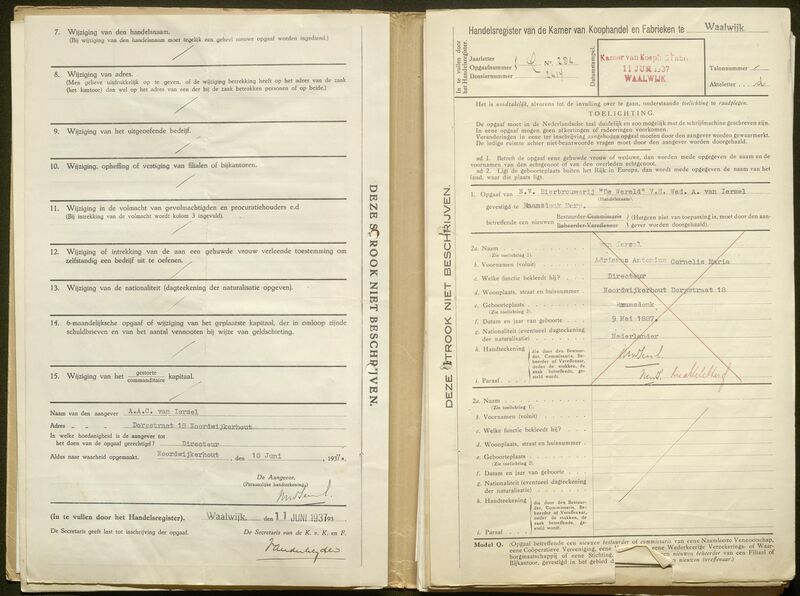 7. Wijziging van den handelsnaam.
(Bij wijziging van den handelsnaam moet tegelijk een geheel nieuwe opgaaf worden ingediend.)
8. Wijziging van adres.
(Men gelieve uitdrukkelijk op te geven, of de wijziging betrekking heeft op het adres van de zaak
(het kantoor) dan wel op het adres van een der bij de zaak betrokken personen of op beide.)
9. Wijziging van het uitgeoefende bedrijf.
10. Wijziging, opheffing of vestiging van filialen of bijkantoren.
11. Wijziging in de volmacht van gevolmachtigden en procuratiehouders e.d
(Bij intrekking van de volmacht wordt kolom 3 ingevuld).
12. Wijziging of intrekking van de aan een gehuwde vrouw verleende toestemming om
zelfstandig een bedrijf uit te oefenen.
13. Wijziging van de nationaliteit (dagteekening der naturalisatie opgeven).
14. 6-maandelijksche opgaaf of wijziging van het geplaatste kapitaal, der in omloop zijnde
schuldbrieven en van het aantal vennooten bij wijze van geldschieting.
15. Wijziging van het gestorte
commanditaire kapitaal.
Naam van den aangever A.A.C. van Iersel
Adres „ „ „ Dorpstraat 18 Noordwijkerhout
In welke hoedanigheid is de aangever tot
het doen van de opgaaf gerechtigd? Directeur
Aldus naar waarheid opgemaakt. Noordwijkerhout, den 10 Juni, 1937.
De Aangever,
(Persoonlijke handteekening)
(In te vullen door het Handelsregister). Waalwijk, den 11 JUNI 1937
De Secretaris geeft last tot inschrijving der opgaaf. De Secretaris van de K. v. K. en F.
DEZE STROOK NIET BESCHRIJVEN.
DEZE STROOK NIET BESCHRIJVEN.
Handelsregister van de Kamer van Koophandel en Fabrieken te Waalwijk.
In te vullen door
het Handelsregister.
Jaarletter
Opgaafnummer No 284
Dossiernummer 2414
Datumstempel.
Kamer van Kooph. & Fabr.
11 JUN. 1937
WAALWIJK
Talonnummer
Akteletter
Het is noodzakelijk, alvorens tot de invulling over te gaan, onderstaande toelichting te raadplegen.
TOELICHTING.
De opgaaf moet in de Nederlandsche taal duidelijk en zoo mogelijk met de schrijfmachine geschreven zijn.
In eene opgaaf mogen geen afkortingen of radeeringen voorkomen.
Veranderingen in eene ter inschrijving aangeboden opgaaf moeten door den aangever worden gewaarmerkt.
De ledige ruimte achter niet-beantwoorde vragen moet door den aangever worden doorgehaald.
ad 1. Betreft de opgaaf eene gehuwde vrouw of weduwe, dan worden mede opgegeven de naam en de
voornamen van den echtgenoot of van den overleden echtgenoot.
ad 2. Ligt de geboorteplaats buiten het Rijk in Europa, dan wordt mede opgegeven de naam van het
land, waar die plaats ligt.
1. Opgaaf van N.V. Bierbrouwerij "De Wereld" V.H. Wed. A. van Iersel
(Handelsnaam).
gevestigd te Raamsdonk Dorp.
betreffende een nieuwen Bestuurder-Commissaris
Beheerder-Vereffenaar (Hetgeen niet van toepassing is, moet door den aan-
gever worden doorgehaald).
2a. Naam van Iersel
(Zie toelichting 1).
b. Voornamen (voluit) Adrianus Antonius Cornelis Maria
c. Welke functie bekleedt hij? Directeur
d. Woonplaats, straat en huisnummer Noordwijkerhout Dorpstraat 18
e. Geboorteplaats Raamsdonk
(Zie toelichting 2).
f. Datum en jaar van geboorte 9 Mei 1887.
g. Nationaliteit (eventueel dagteekening
der naturalisatie) Nederlander
h. Handteekening
die door den Bestuur-
der, Commissaris, Be-
heerder of Vereffenaar,
onder de stukken, de
zaak betreffende, ge-
steld worde.
i. Paraaf
2a. Naam
(Zie toelichting 1).
b. Voornamen (voluit)
c. Welke functie bekleedt hij?
d. Woonplaats, straat en huisnummer
e. Geboorteplaats
(Zie toelichting 2).
f. Datum en jaar van geboorte
g. Nationaliteit (eventueel dagteekening
der naturalisatie)
h. Handteekening
die door den Bestuur-
der, Commissaris, Be-
heerder of Vereffenaar,
onder de stukken, de
zaak betreffende, ge-
steld worde.
i. Paraaf
Model Q. (Opgaaf betreffende een nieuwen bestuurder of commissaris van eene Naamlooze Vennootschap,
eene Coöperatieve Vereeniging, eene Wederkeerige Verzekerings- of Waar-
borgmaatschappij of eene Stichting. een nieuwen beheerder van een Filiaal of
Bijkantoor, gevestigd in het gebied nieuwen vereffenaar.)